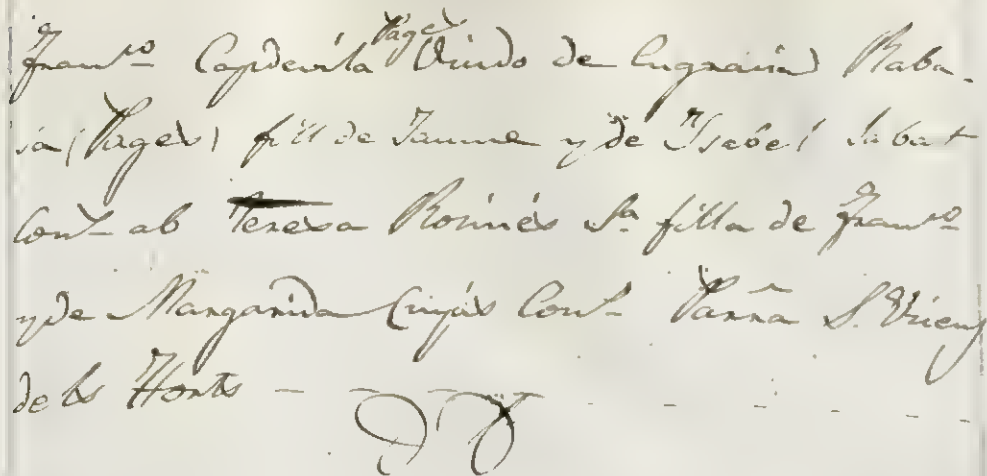 Pages
Franco Capdevila Viudo de Engracia Raba-
sa (Pages) fill de Jaume y de Isabel Sabat
Cons ab Teresa Rominés Sa filla de Franco
y de Margarida Cuyás Cons Parrã S. Viceng
dels Horts